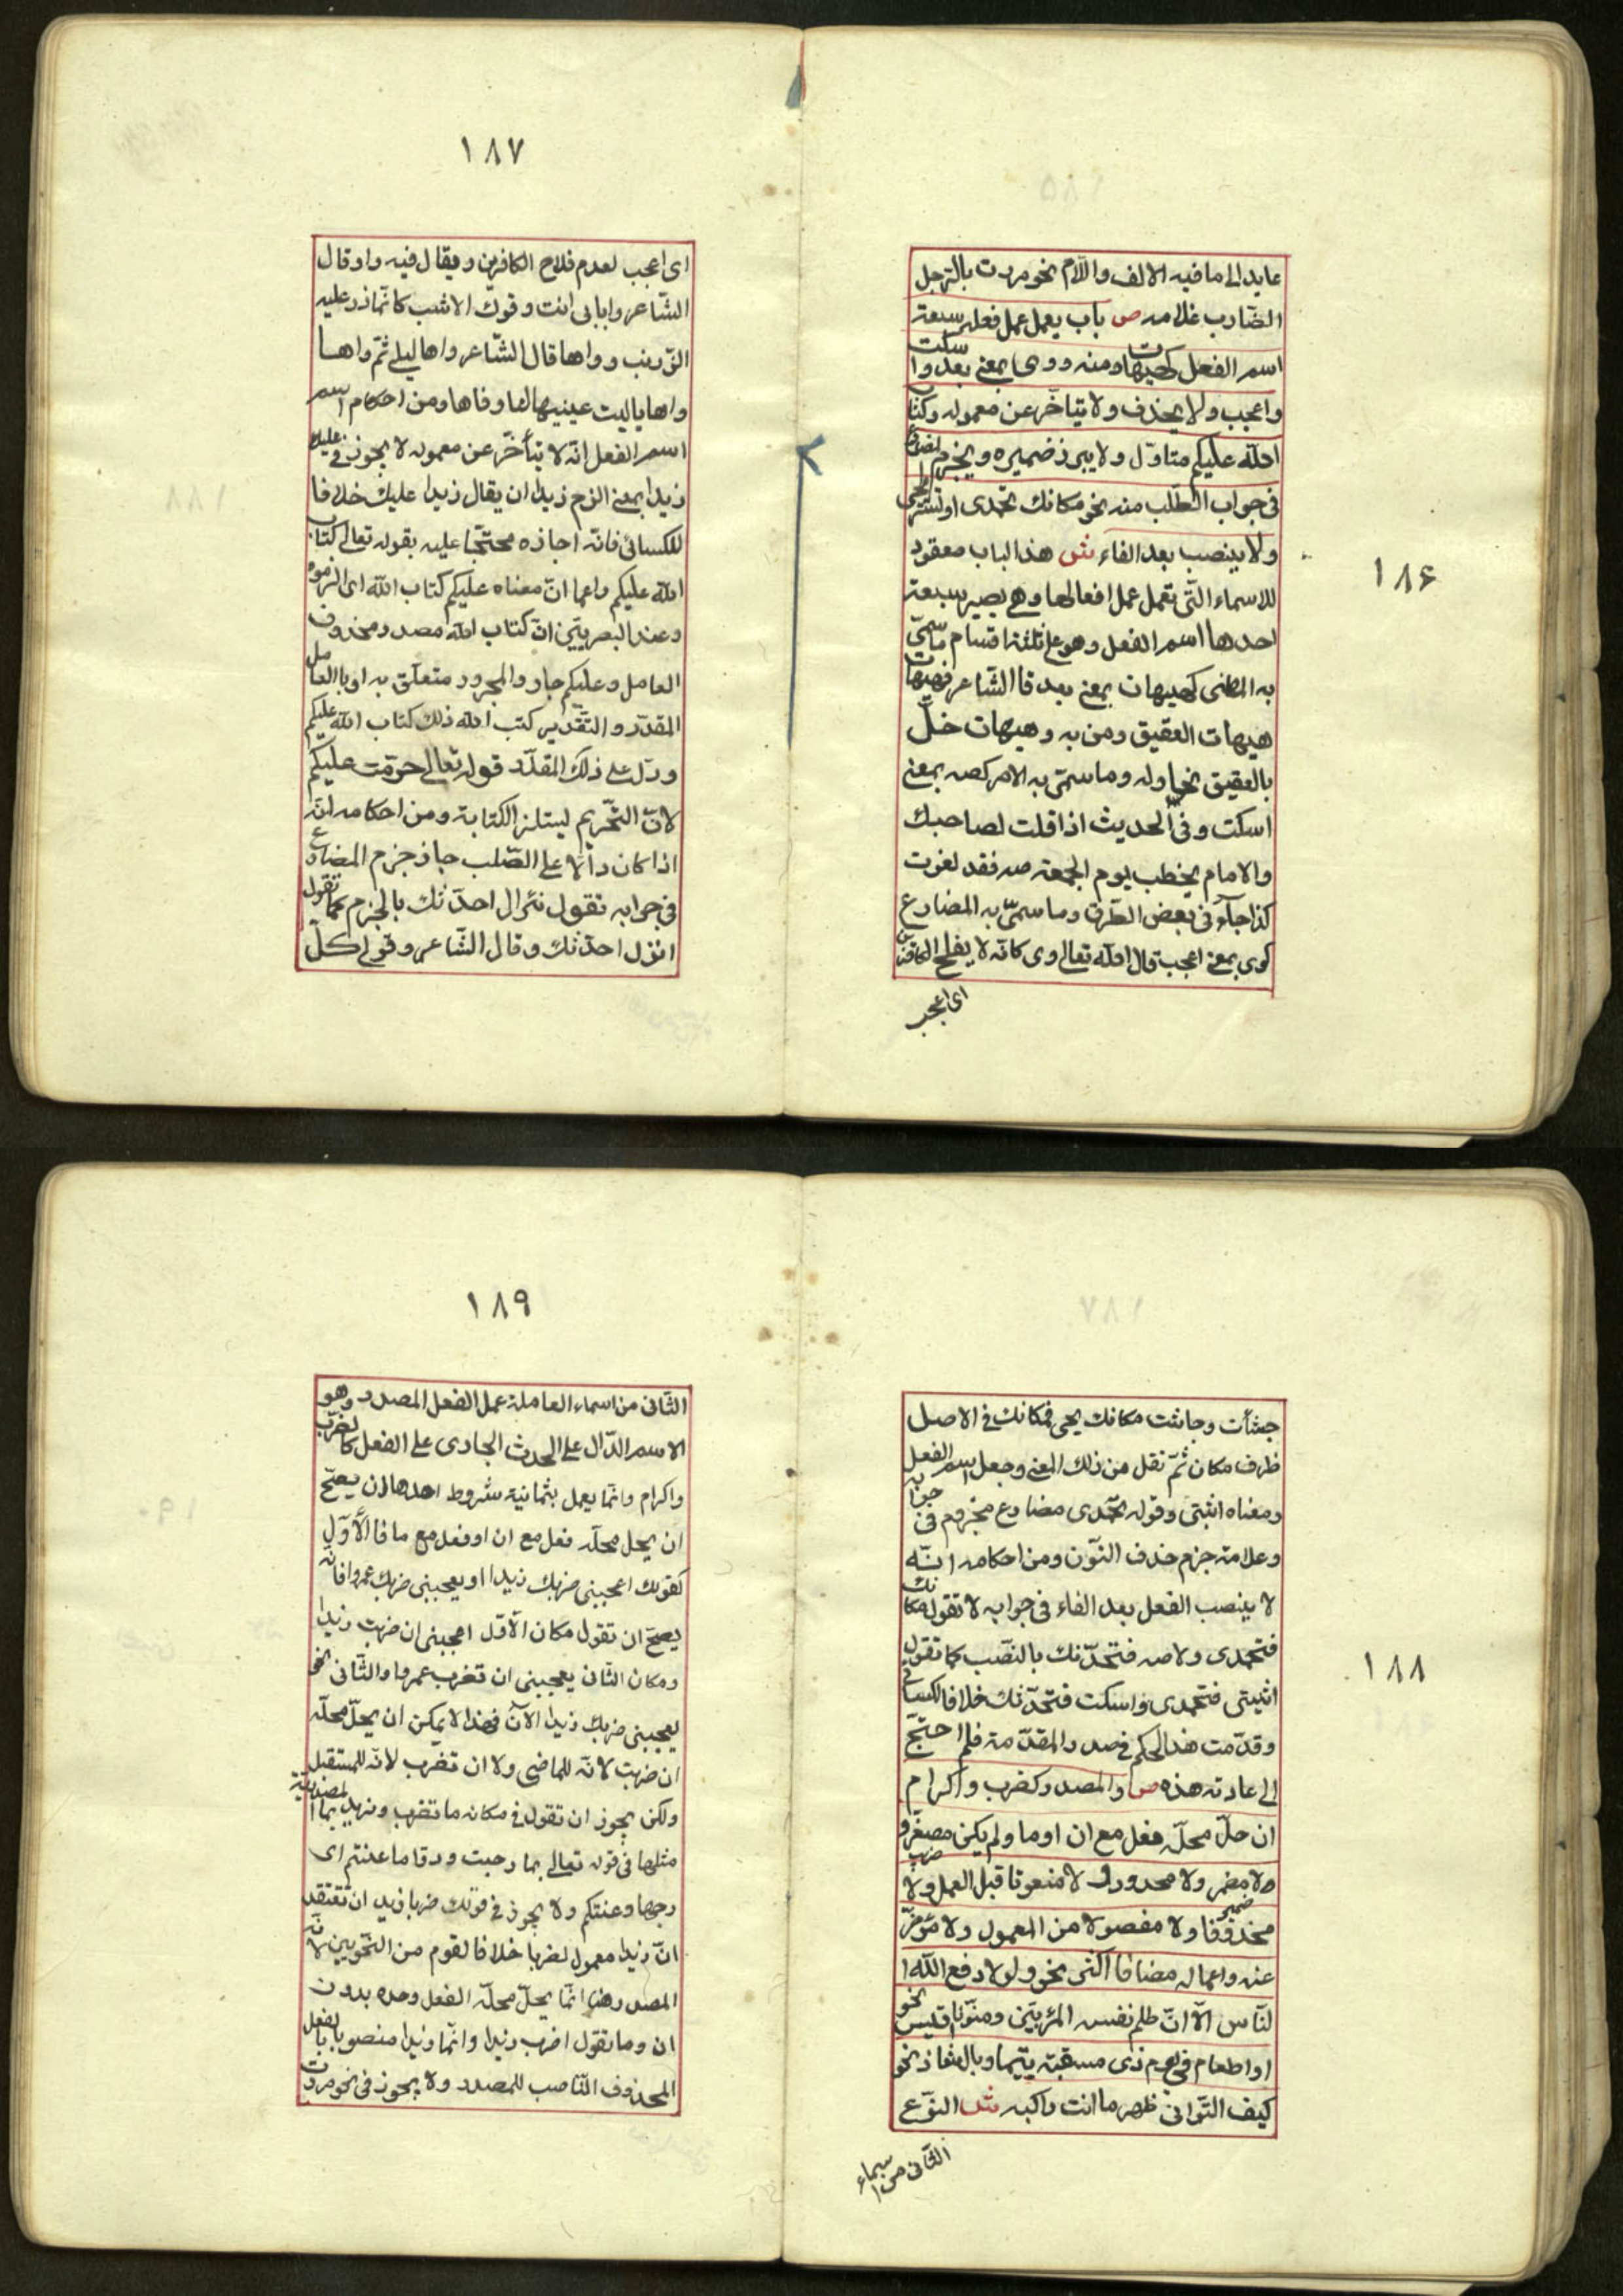 ١٨۶
عايد الى ما فيه الالف واللّام نحو مررت بالرّجل
الضّارب غلامه ص باب يعمل عمل فعله سبعة
اسم الفعل كهيهات وصه ووى بمعنى بعد واسكت
واعجب ولا يحذف ولا يتاخّر عن معموله وكتاب
الله عليكم متاوّل ولا يبرز ضميره ويجزم المضارع
فى جواب الطّلب منه نحو مكانك تحمدى او تستريحى
ولا ينصب بعد الفاء ش هذا الباب معقود
للاسماء الّتى تعمل عمل افعالها وهى سبعة
احدها اسم الفعل وهو على ثلثة اقسام ما سمّى
به الماضى كهيهات بمعنى بعد قا الشّاعر فهيهات
هيهات العقيق ومن به وهيهات خلّ
بالعقيق نحاوله وما سمّى به الامر كصه بمعنى
اسكت وفى الحديث اذا قلت لصاحبك
والامام يخطب يوم الجمعة صه فقد لغوت
كذا جآء فى بعض الطّرق وما سمىّ به المضارع
كوى بمعنى اعجب قال الله تعالى وى كانّه لا يفلح الكافرين
اى اعجب
١٨٧
اى اعجب لعدم فلاح الكافرين ويقال فيه وا وقال
الشّاعر وا بابى انت وفوك الاشنب كانّما ذر عليه
الزّرنب وواها قال الشّاعر واها ليلى ثمّ واها
واها ياليت عينيها لها وفاها ومن احكام اسم
اسم الفعل انّه لا يتأخّر عن معموله لا يجوز فى عليك
زيدا بمعنى الزم زيدا ان يقال زيدا عليك خلافا
للكسائى فانّه اجازه محتجّا عليه بقوله تعالى كتاب
الله عليكم واعما انّ معناه عليكم كتاب الله اى الزموه
وعند البصريّين انّ كتاب الله مصدر محذوف
العامل وعليكم جار والمجرور متعلّق به او بالعامل
المقدّر والتّقدير كتب الله ذلك كتاب الله عليكم
ودلّ على ذلك المقدّر قوله تعالى حرّمت عليكم
لانّ التّحريم ليستلزم الكتابة ومن احكامه انّه
اذا كان دألّا على الطّلب جاز جزم المضارع
فى جوابه تقول نزال احدّثك بالجزم كما تقول
انزل احدّثك وقال الشّاعر وقولى كلّ
١٨٨
جشأت وجاشت مكانك يحمى فمكانك فى الاصل
ظرف مكان ثمّ نقل من ذلك المعنى وجعل اسم الفعل
ومعناه اثبتى وقوله تحمدى مضارع مجزوم فى جوابه
وعلامة جزم حذف النّون ومن احكامه انّه
لا ينصب الفعل بعد الفاء فى جوابه لا تقول مكانك
فتحمدى ولا صه فتحدّثك بالنّصب كما تقول
اثبتى فتحمدى واسكت فتحدّثك خلافا للكسائى
وقدّمت هذا الحكم فى صدر المقدّمة فلم احتجّ
الى عادته هذه ص والمصدر كضرب واكرام
ان حلّ محلّه فعل مع ان او ما ولم يكن مصغّرو
ولا مضمر ولا محدودا ولا منعوتا قبل العمل ولا
محذوفا ولا مفصولا من المعمول ولا مؤخّر
عنه واعماله مضافا اكثر نحو ولولا دفع الله ا
لنّاس الّا انّ ظلم نفسه المرء بيّن ومنوّنا قيس نحو
او اطعام فى يوم ذى مسغبة يتيما وبال شاذ نحو
كيف التّوانى ظهر ما انت راكبه ش النّوع
الثّانى من اسماء
١٨٩
الثّانى من اسماء العاملة عمل الفعل المصدر وهو
الاسم الدّال على الحدث الجارى على الفعل كالضرب
واكرام وانّما يعمل بثمانية شروط احدها ان يصحّ
ان يحل محلّه فعل مع ان او فعل مع ما فا الأوّل
كقولك اعجبنى ضربك زيدا او يعجبنى ضربك عمروا فانّه
يصحّ ان تقول مكان الأوّل اعجبنى ان ضربت زيدا
ومكان الثّانى يعجبنى ان تضرب عمروا والثّانى نحو
يعجبنى ضربك زيدا الآن فهذا لا يمكن ان يحلّ محلّه
ان ضربت لانّه للماضى ولا ان تضرب لأنّه للمستقبل
ولكن يجوز ان تقول فى مكانه ما تضرب وتريد بما المصدريّة
مثلها فى قوله تعالى بما رحبت ودقا ما عنتم اى
رحبها وعنتكم ولا يجوز فى قولك ضربا زيدا ان تعتقد
انّ زيدا معمول لضربا خلافا لقوم من النّحويين لانّه
المصدر هنا انّما يحلّ محلّه الفعل وحده بدون
ان وما تقول اضرب زيدا وانّما زيدا منصوبا بالفعل
المحذوف النّاصب للمصدر ولا يجوز فى نحو مررت